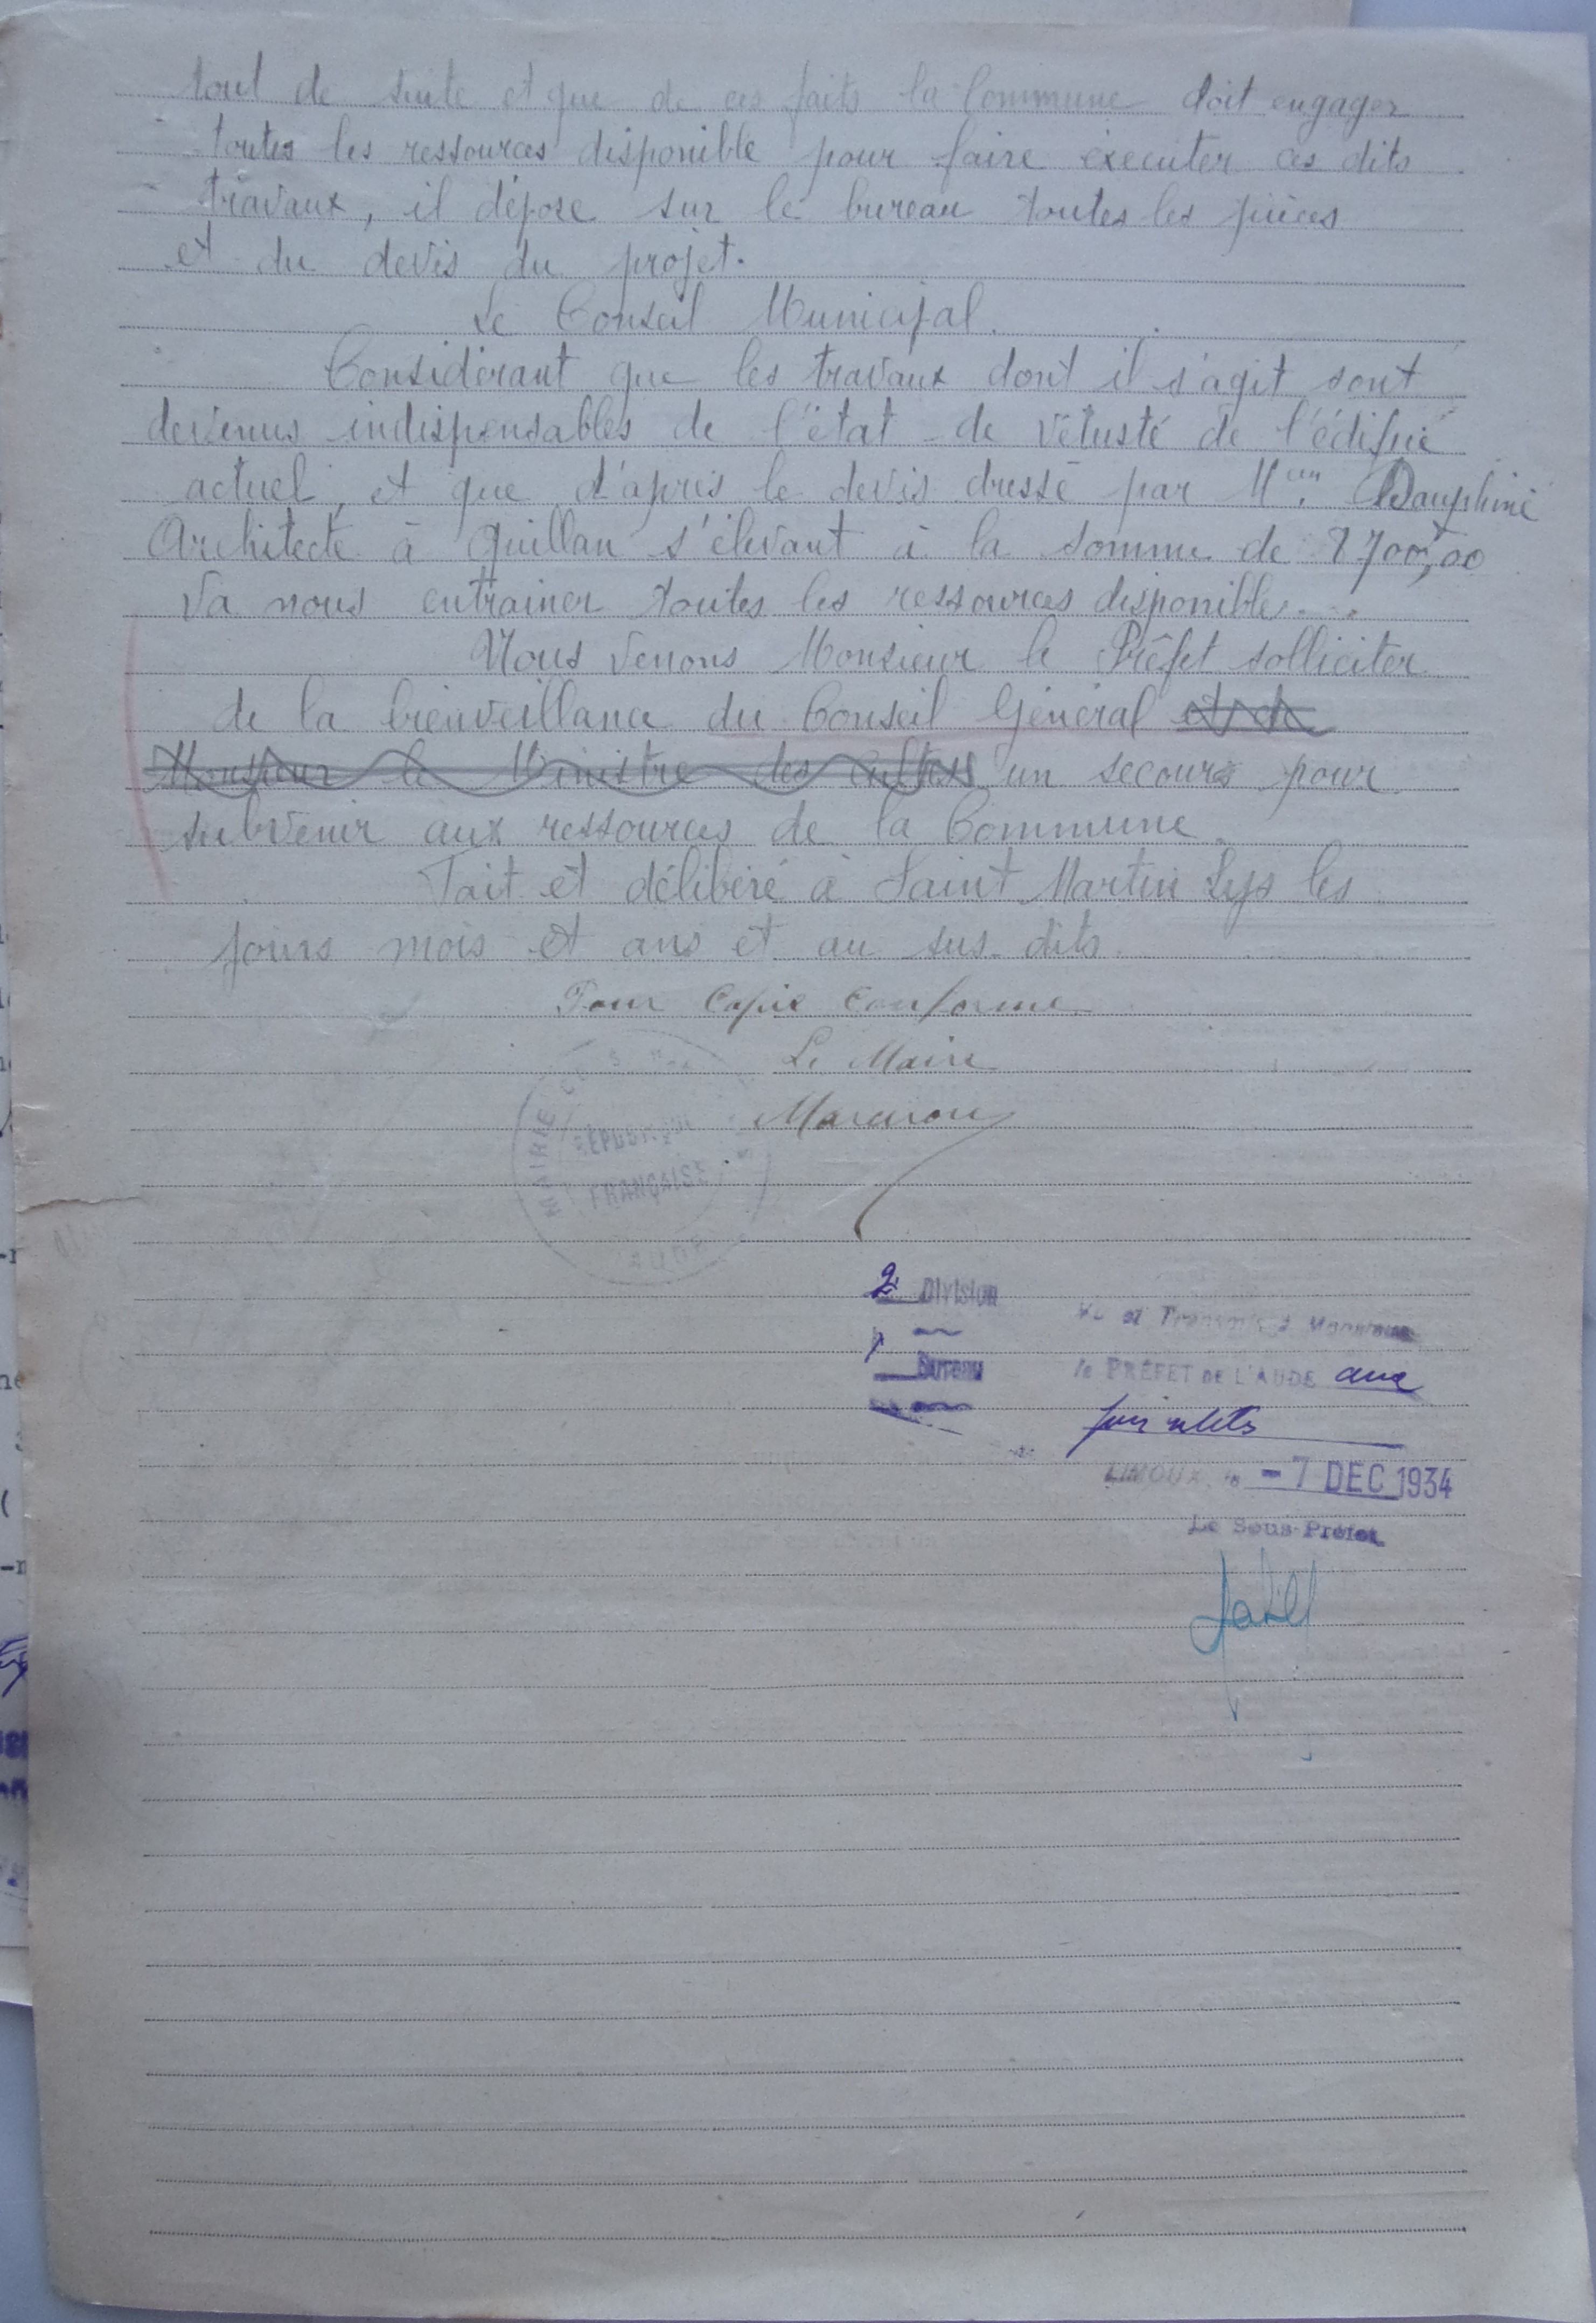 tout de suite et que de ces faits la Commune doit engager
toutes les ressources disponible pour faire éxécuter ces dits
travaux, il dépose sur le bureau toutes les pièces
et du devis du projet.
Le Conseil Municipal.
Considérant que les travaux dont il s'agit sont
devenus indispensables de l'état de vétusté de l'édifice
actuel, et que d'après le devis dressé par Dauphiné
Architecte à Quillan s'élevant à la somme de 8700,00
va nous entrainer toutes les ressources disponibles.
Nous venons Monsieur le Préfet solliciter
de la bienveillance du Conseil Général et de
Monsieur le Ministre des cultes un secours pour
subvenir aux ressources de la Commune.
Fait et délibéré à Saint Martin Lys les
jours mois et ans et au sus-dits.
Pour Copie Conforme
Le Maire
MAIRIE DE S
RÉPUBLIQUE
FRANÇAISE
AUDE
2 Division
1 Bureau
Vu et Transmis à Monsieur
le PRÉFET DE L'AUDE avec
LIMOUX, le - 7 DEC 1934
Le Sous-Préfet